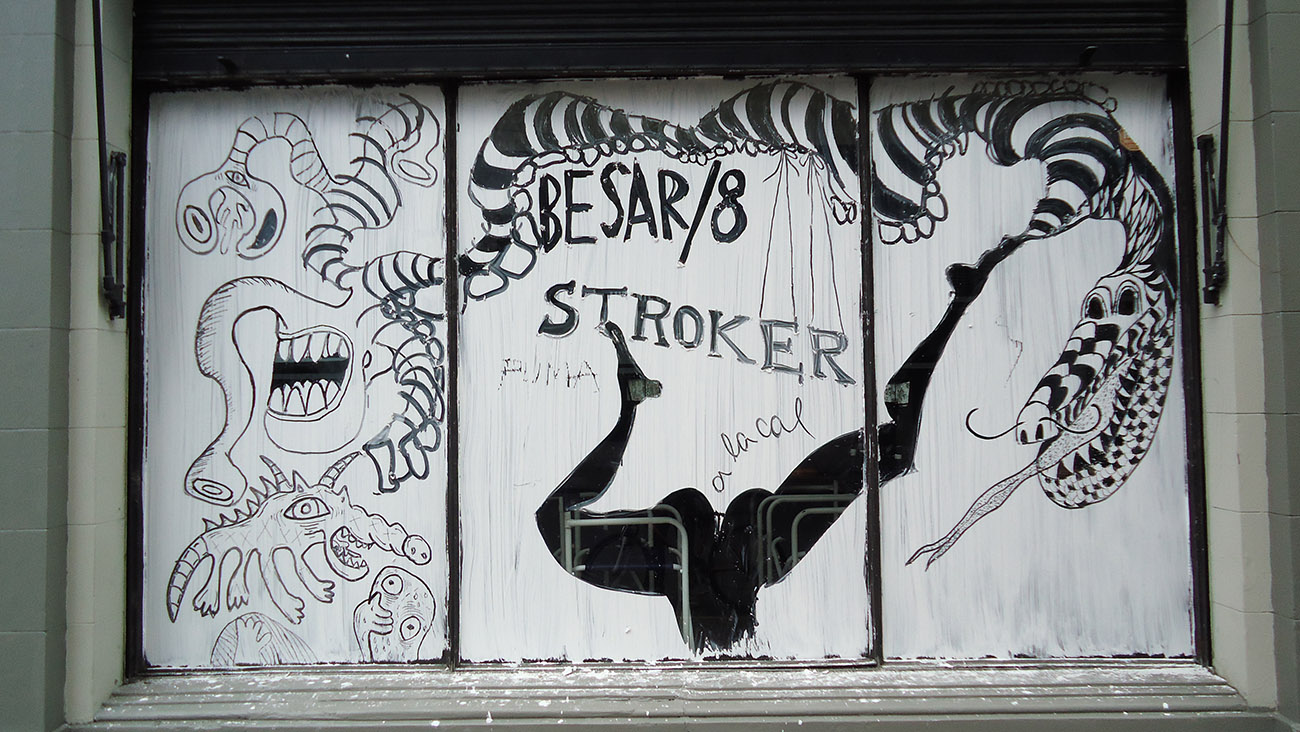 BESAR/8
STROKER
PUMA
a la cal